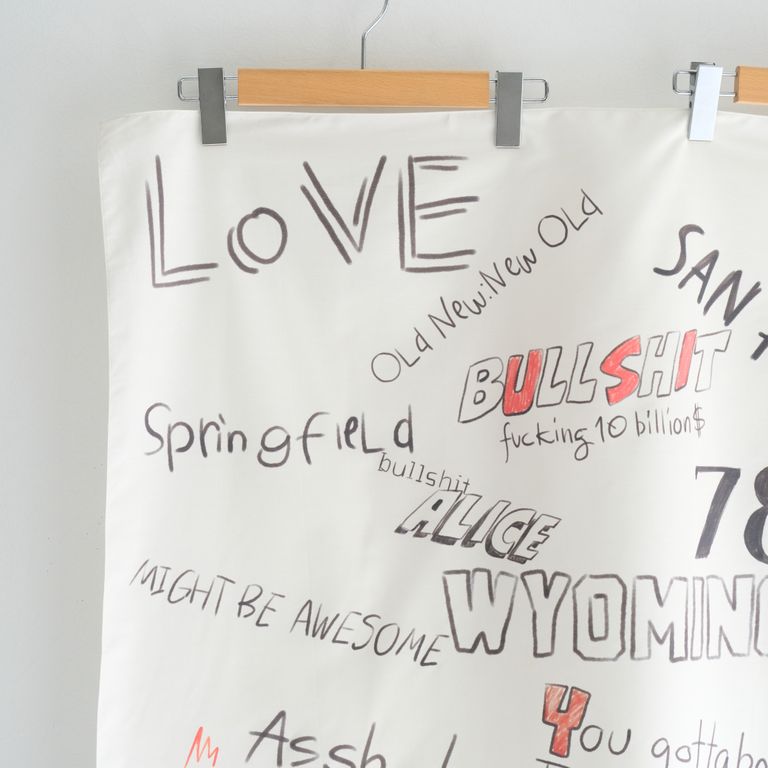 LoVE
OLd New:New OLd
SAN
BULLSHIT
fucking 10 billion$
SpringfieLd
bullshit
ALICE
78
MIGHT BE AWESOME
WYOMING
You gottabe